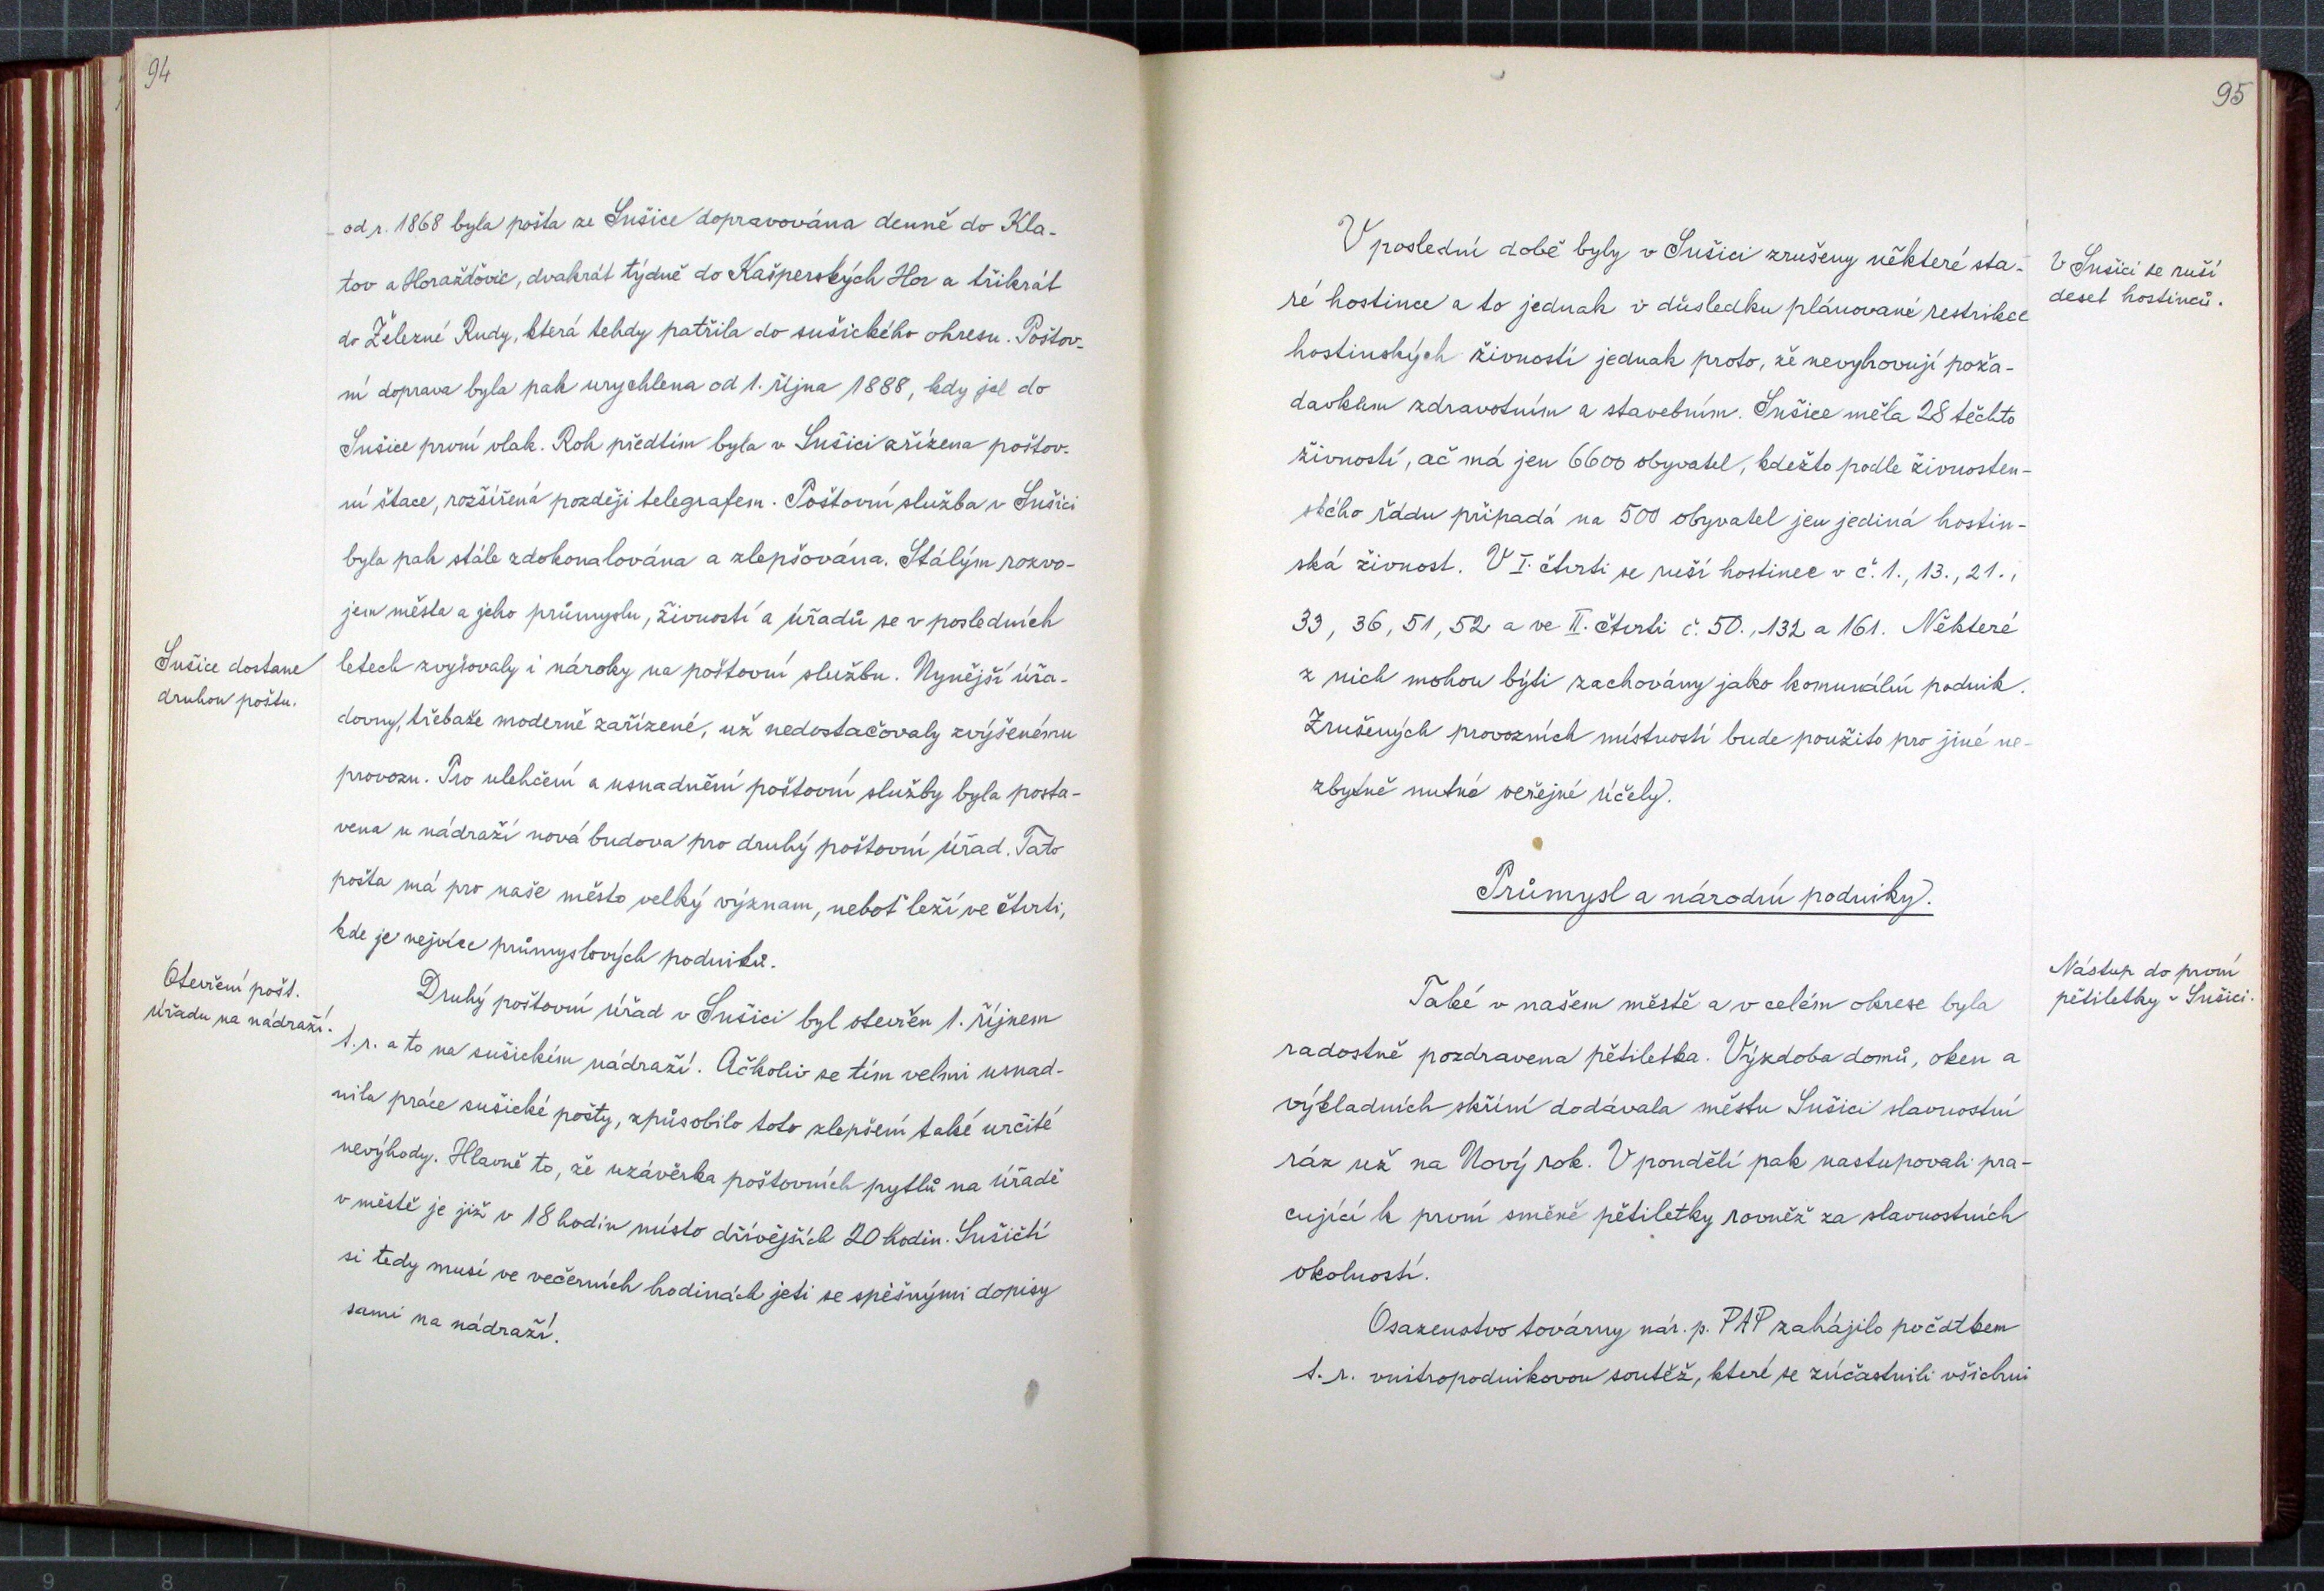 94
od r. 1868 byla pošta ze Sušice dopravována denně do Kla-
tov a Horažďovic, dvakrát týdně do Kašperských Hor a třikrát
do Železné Rudy, která tehdy patřila do sušického okresu. Poštov-
ní doprava byla pak urychlena od 1. října 1888, kdy jel do
Sušice první vlak. Rok předtím byla v Sušici zřízena poštov-
ní štace, rozšířená později telegrafem. Poštovní služba v Sušici
byla pak stále zdokonalována a zlepšována. Stálým rozvo-
jem města a jeho průmyslu, živností a úřadů se v posledních
Sušice dostane
druhou poštu.
letech zvyšovaly i nároky na poštovní službu. Nynější úřa-
dovny, třebaže moderně zařízené, už nedostačovaly zvýšenému
provozu. Pro ulehčení a usnadnění poštovní služby byla posta-
vena u nádraží nová budova pro druhý poštovní úřad. Tato
pošta má pro naše město velký význam, neboť leží ve čtvrti,
kde je nejvíce průmyslových podniků.
Otevření pošt.
úřadu na nádraží.
Druhý poštovní úřad v Sušici byl otevřen 1. říjnem
t. r. a to na sušickém nádraží. Ačkoliv se tím velmi usnad-
nila práce sušické pošty, způsobilo toto zlepšení také určité
nevýhody. Hlavně to, že uzávěrka poštovních pytlů na úřadě
v městě je již v 18 hodin místo dřívějších 20 hodin. Sušičtí
si tedy musí ve večerních hodinách jeti se spěšnými dopisy
sami na nádraží.
95
V poslední době byly v Sušici zrušeny některé sta-
ré hostince a to jednak v důsledku plánované restrikce
hostinských živností jednak proto, že nevyhovují poža-
davkům zdravotním a stavebním. Sušice měla 28 těchto
živností, ač má jen 6600 obyvatel, kdežto podle živnosten-
ského řádu připadá na 500 obyvatel jen jediná hostin-
ská živnost. V I. čtvrti se ruší hostinec v č. 1., 13., 21.,
33, 36, 51, 52 a ve II. čtvrti č. 50., 132 a 161. Některé
z nich mohou býti zachovány jako komunální podnik.
Zrušených provozních místností bude použito pro jiné ne-
zbytně nutné veřejné účely.
V Sušici se ruší
deset hostinců.
Průmysl a národní podniky.
Nástup do první
pětiletky v Sušici.
Také v našem městě a v celém okrese byla
radostně pozdravena pětiletka. Výzdoba domů, oken a
výkladních skříní dodávala městu Sušici slavnostní
ráz už na Nový rok. V pondělí pak nastupovali pra-
cující k první směně pětiletky rovněž za slavnostních
okolností.
Osazenstvo továrny nár. p. PAP zahájilo počátkem
t. r. vnitropodnikovou soutěž, které se zúčastnili všichni